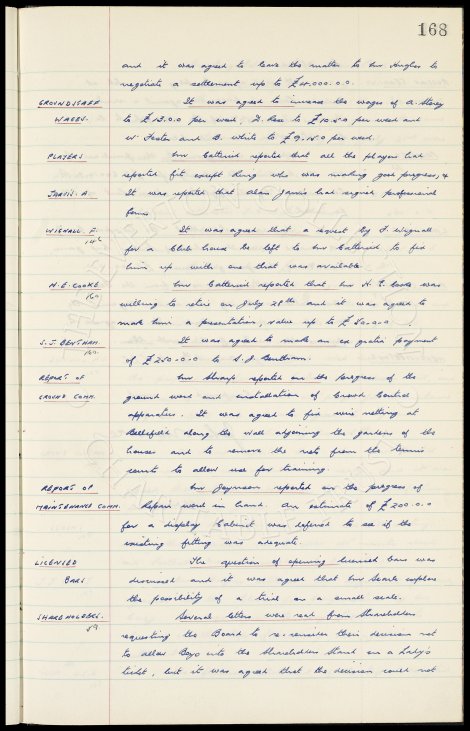 168
and it was agreed to leave the matter to Mr Hughes to
negotiate a settlement up to £4,000.0.0.
GROUNDSTAFF It was agreed to increase the wages of A. Storey
WAGES. to £13.0.0 per week, J. Rose to £10.5.0 per week and
W. Foster and B. White to £9.15.0 per week.
PLAYERS Mr Catterick reported that all the players had
reported fit except King who was making good progress, &
JARVIS. A. It was reported that Alan Jarvis had signed professional
forms
WIGNALL F. It was agreed that a request by F. Wignall
146
for a Club house be left to Mr Catterick to fix
him up with one that was available.
H.E. COOKE Mr Catterick reported that Mr H. E. Cooke was
160
willing to retire on July 28th and it was agreed to
make him a presentation, value up to £50.0.0.
S.J. BENTHAM. It was agreed to make an ex gratia payment
160.
of £250.0.0 to S.J. Bentham.
REPORT OF Mr Sharp reported on the progress of the
GROUND COMM. ground work and installation of Crowd Control
apparatus. It was agreed to fix wire netting at
Bellefield along the wall adjoining the gardens of the
houses and to remove the nets from the tennis
courts to allow use for training
REPORT OF Mr Jaynson reported on the progress of
MAINTENANCE COMM. Repair work in hand. An estimate of £200.0.0
for a display Cabinet was deferred to see if the
existing fitting was adequate.
LICENSED The question of opening licensed bars was
BARS discussed and it was agreed that Mr Searle explore
the possibility of a trial on a small scale.
SHAREHOLDERS. Several letters were read from Shareholders
59
requesting the Board to re-consider their decision not
to allow Boys into the Shareholders Stand on a Lady's
ticket, but it was agreed that the decision could not